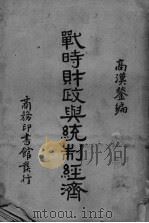 高漢鏊編
戰時財政與統制經濟
商務印書館發行